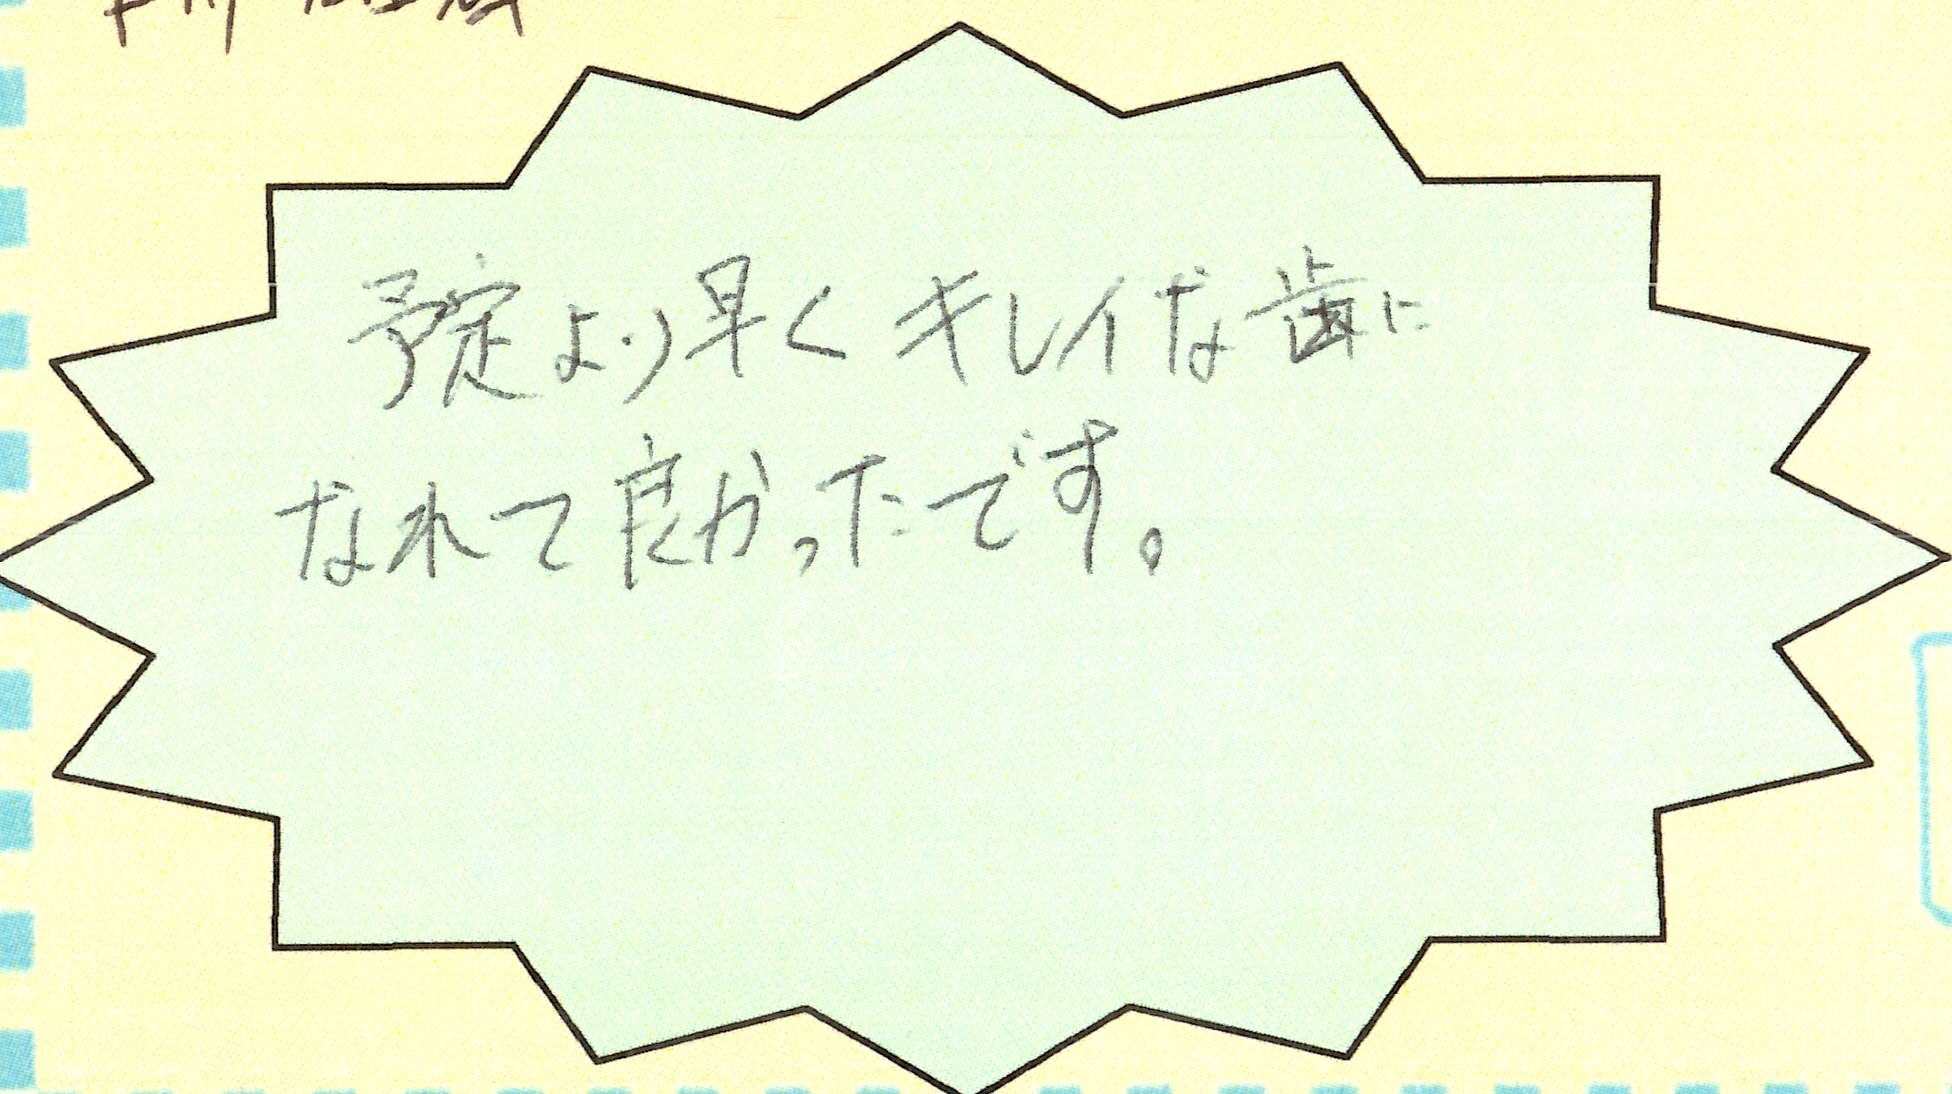 予定より早くキレイな歯に
なれて良かったです。